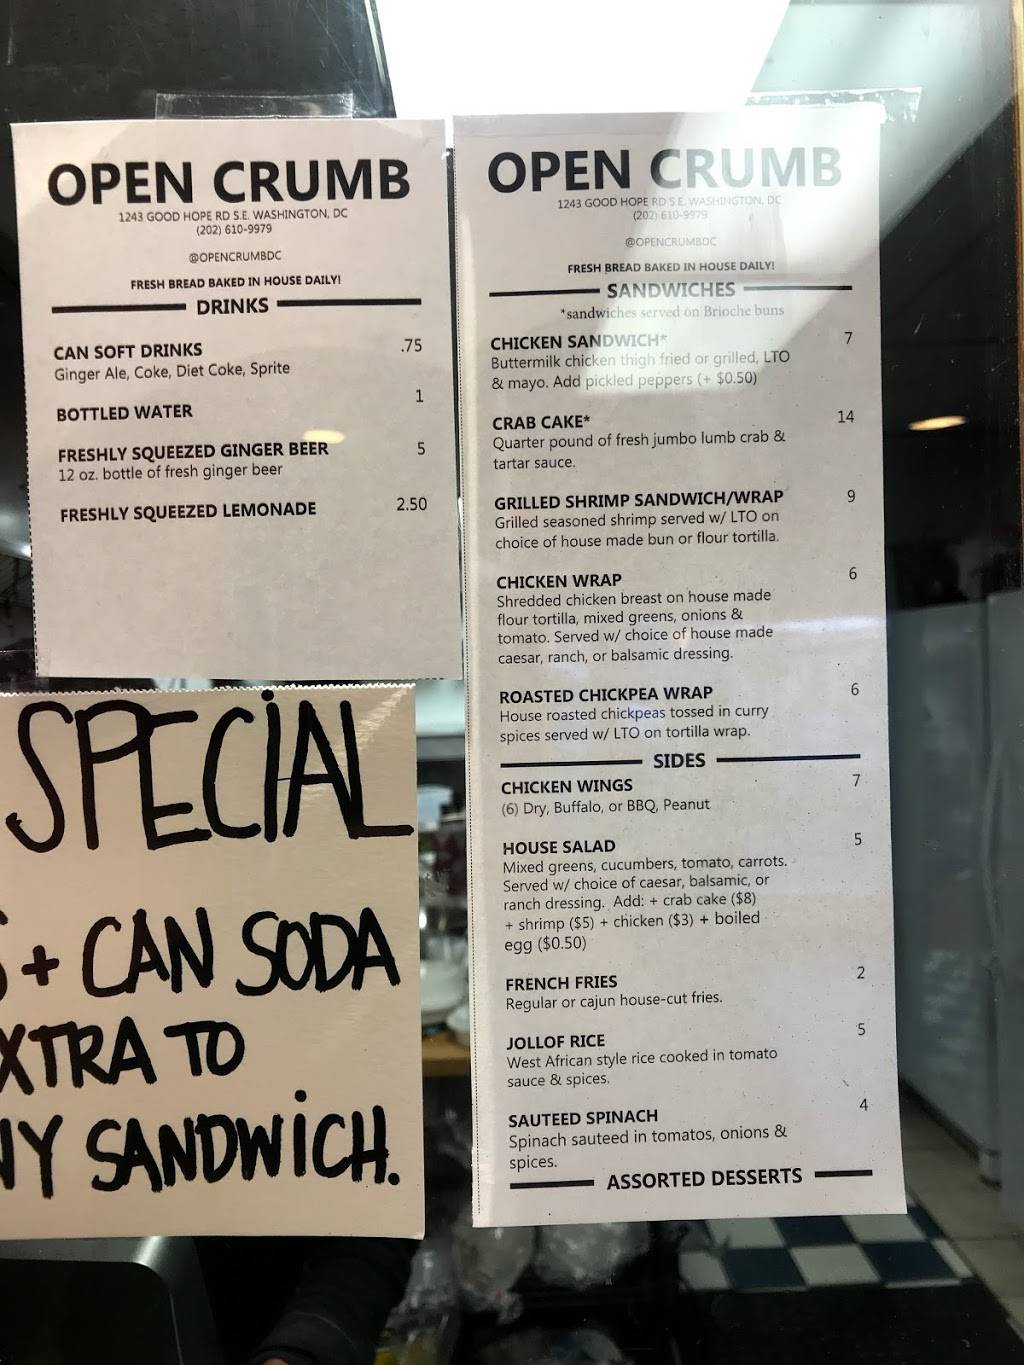 OPEN CRUMB
1243 GOOD HOPE RD S.E. WASHINGTON, DC
(202) 610-9979
@OPENCRUMBDC
FRESH BREAD BAKED IN HOUSE DAILY!
DRINKS
CAN SOFT DRINKS .75
Ginger Ale, Coke, Diet Coke, Sprite
BOTTLED WATER 1
FRESHLY SQUEEZED GINGER BEER 5
12 oz. bottle of fresh ginger beer
FRESHLY SQUEEZED LEMONADE 2.50
SPECIAL
+ CAN SODA
XTRA TO
NY SANDWICH.
OPEN CRUMB
1243 GOOD HOPE RD S.E. WASHINGTON, DC
(202) 610-9979
@OPENCRUMBDC
FRESH BREAD BAKED IN HOUSE DAILY!
SANDWICHES
*sandwiches served on Brioche buns
CHICKEN SANDWICH* 7
Buttermilk chicken thigh fried or grilled, LTO
& mayo. Add pickled peppers (+ $0.50)
CRAB CAKE* 14
Quarter pound of fresh jumbo lumb crab &
tartar sauce.
GRILLED SHRIMP SANDWICH/WRAP 9
Grilled seasoned shrimp served w/ LTO on
choice of house made bun or flour tortilla.
CHICKEN WRAP 6
Shredded chicken breast on house made
flour tortilla, mixed greens, onions &
tomato. Served w/ choice of house made
caesar, ranch, or balsamic dressing.
ROASTED CHICKPEA WRAP 6
House roasted chickpeas tossed in curry
spices served w/ LTO on tortilla wrap.
SIDES
CHICKEN WINGS 7
(6) Dry, Buffalo, or BBQ, Peanut
HOUSE SALAD 5
Mixed greens, cucumbers, tomato, carrots.
Served w/ choice of caesar, balsamic, or
ranch dressing. Add: + crab cake ($8)
+ shrimp ($5) + chicken ($3) + boiled
egg ($0.50)
FRENCH FRIES 2
Regular or cajun house-cut fries.
JOLLOF RICE 5
West African style rice cooked in tomato
sauce & spices.
SAUTEED SPINACH 4
Spinach sauteed in tomatos, onions &
spices.
ASSORTED DESSERTS